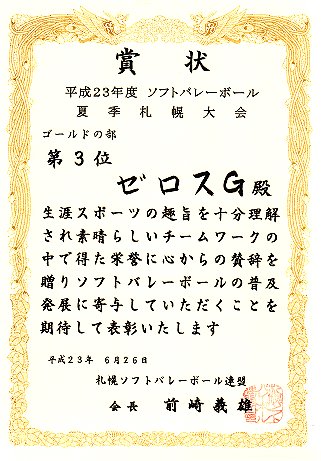 賞状
平成23年度 ソフトバレーボール
夏季札幌大会
ゴールドの部
第3位
ゼロスG殿
生涯スポーツの趣旨を十分理解
され素晴らしいチームワークの
中で得た栄誉に心からの賛辞を
贈りソフトバレーボールの普及
発展に寄与していただくことを
期待して表彰いたします
平成23年 6月26日
札幌ソフトバレーボール連盟
会長 前崎義雄